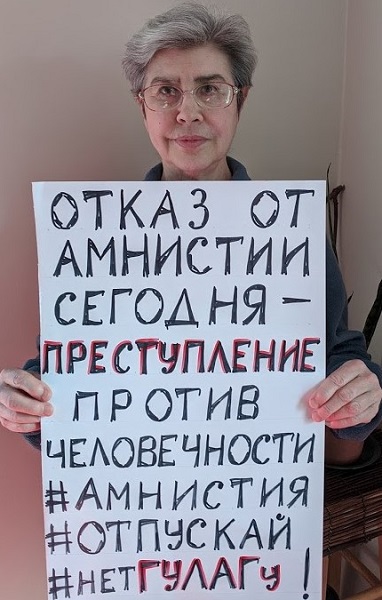 ОТКАЗ ОТ
АМНИСТИИ
СЕГОДНЯ –
ПРЕСТУПЛЕНИЕ
ПРОТИВ
ЧЕЛОВЕЧНОСТИ
#АМНИСТИЯ
#ОТПУСКАЙ
#НЕТГУЛАГУ!